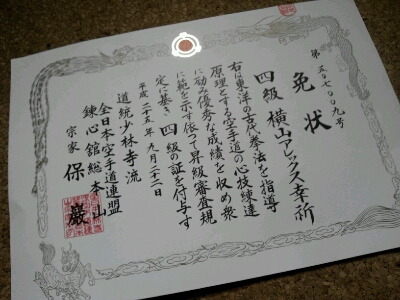 免状
第五0七000九号
四級 横山アレックス幸祈
右は東洋の古代拳法を指導
原理とする空手道の心技練達
に励み優秀な成績を収め衆
に範を示す依つて昇級審査規
定に基き 四級の証を付与す
平成二十五年九月二十二日
道統少林寺流
全日本空手道連盟
錬心舘総本山
宗家 保 巖